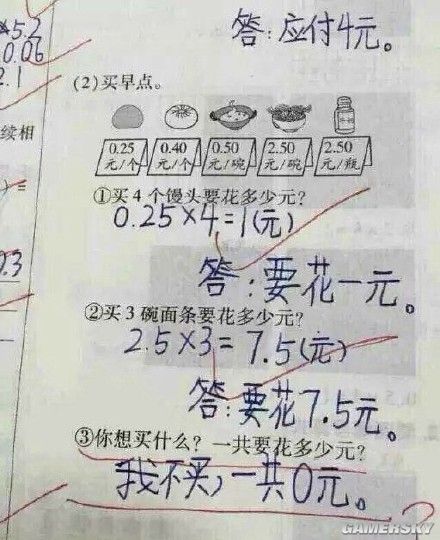 ×5.2
0.06
2.1
答:应付4元。
(2)买早点。
续相
0.25 元/个
0.40 元/个
0.50 元/碗
2.50 元/碗
2.50 元/瓶
①买4个馒头要花多少元?
0.25×4=1(元)
答:要花一元。
②买3碗面条要花多少元?
2.5×3=7.5(元)
答:要花7.5元。
③你想买什么?一共要花多少元?
我不买,一共0元。
GAMERSKY